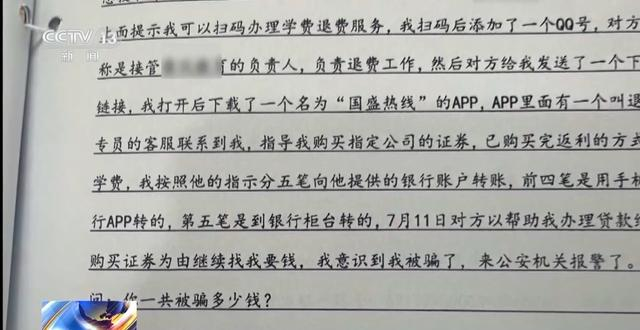 CCTV 13
新闻
上面提示我可以扫码办理学费退费服务，我扫码后添加了一个QQ号，对方
称是接管 的负责人，负责退费工作，然后对方给我发送了一个下
链接，我打开后下载了一个名为“国盛热线”的APP，APP里面有一个叫退
专员的客服联系到我，指导我购买指定公司的证券，已购买完返利的方式
学费，我按照他的指示分五笔向他提供的银行账户转账，前四笔是用手机
行APP转的，第五笔是到银行柜台转的，7月11日对方以帮助我办理贷款继
购买证券为由继续找我要钱，我意识到我被骗了，来公安机关报警了。
问：你一共被骗多少钱？